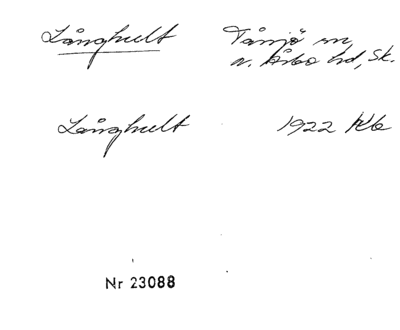 Långhult Tåssjö sn,
n. Åsbo hd, Sk.
Långhult 1922 Kb
Nr 23088